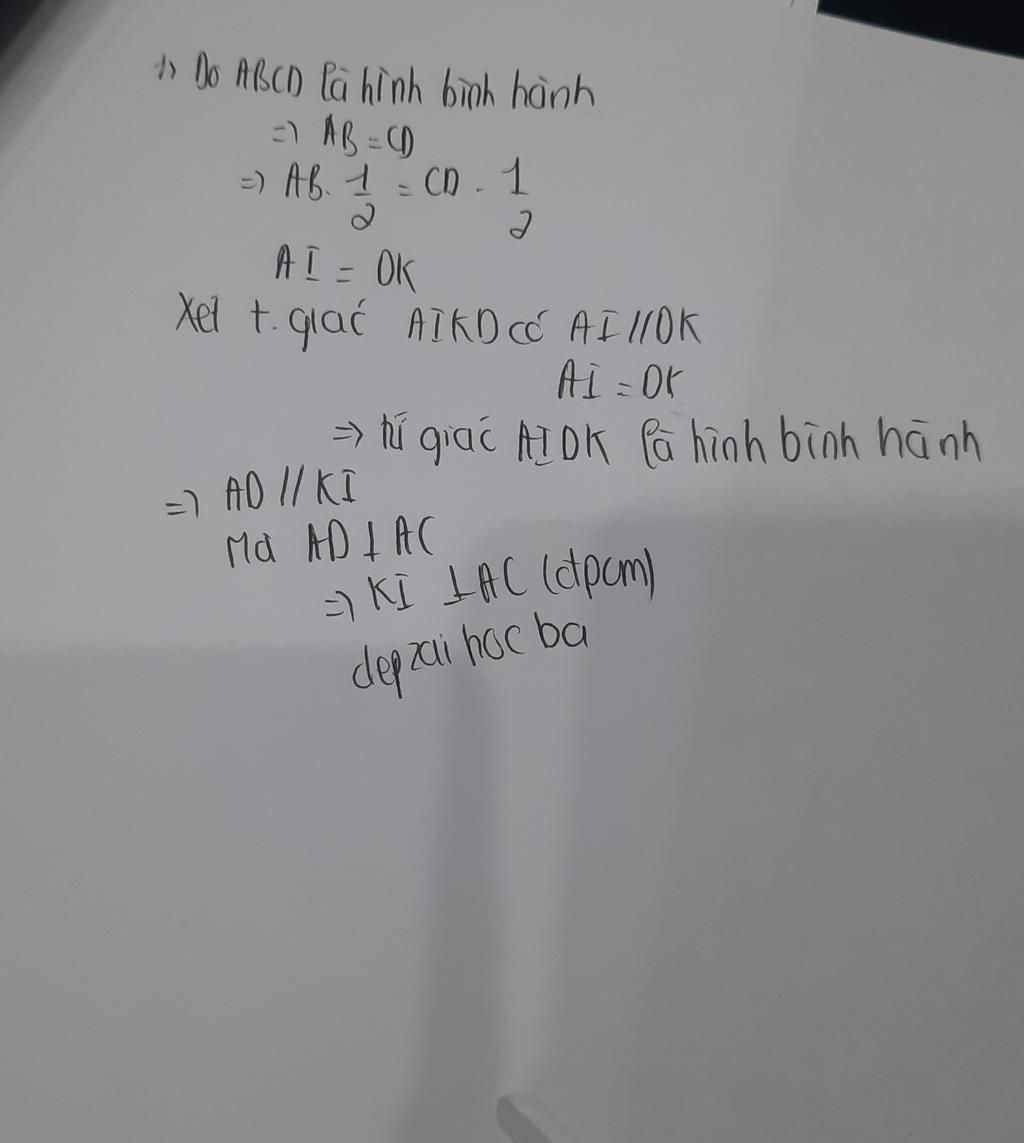 1) Do ABCD là hình bình hành
=> AB = CD
=> AB. 1/2 = CD . 1/2
AI = DK
Xét t. giác AIKD có AI // DK
AI = DK
=> tứ giác AIDK là hình bình hành
=> AD // KI
Mà AD ⊥ AC
=> KI ⊥ AC (đpcm)
depzai hoc ba